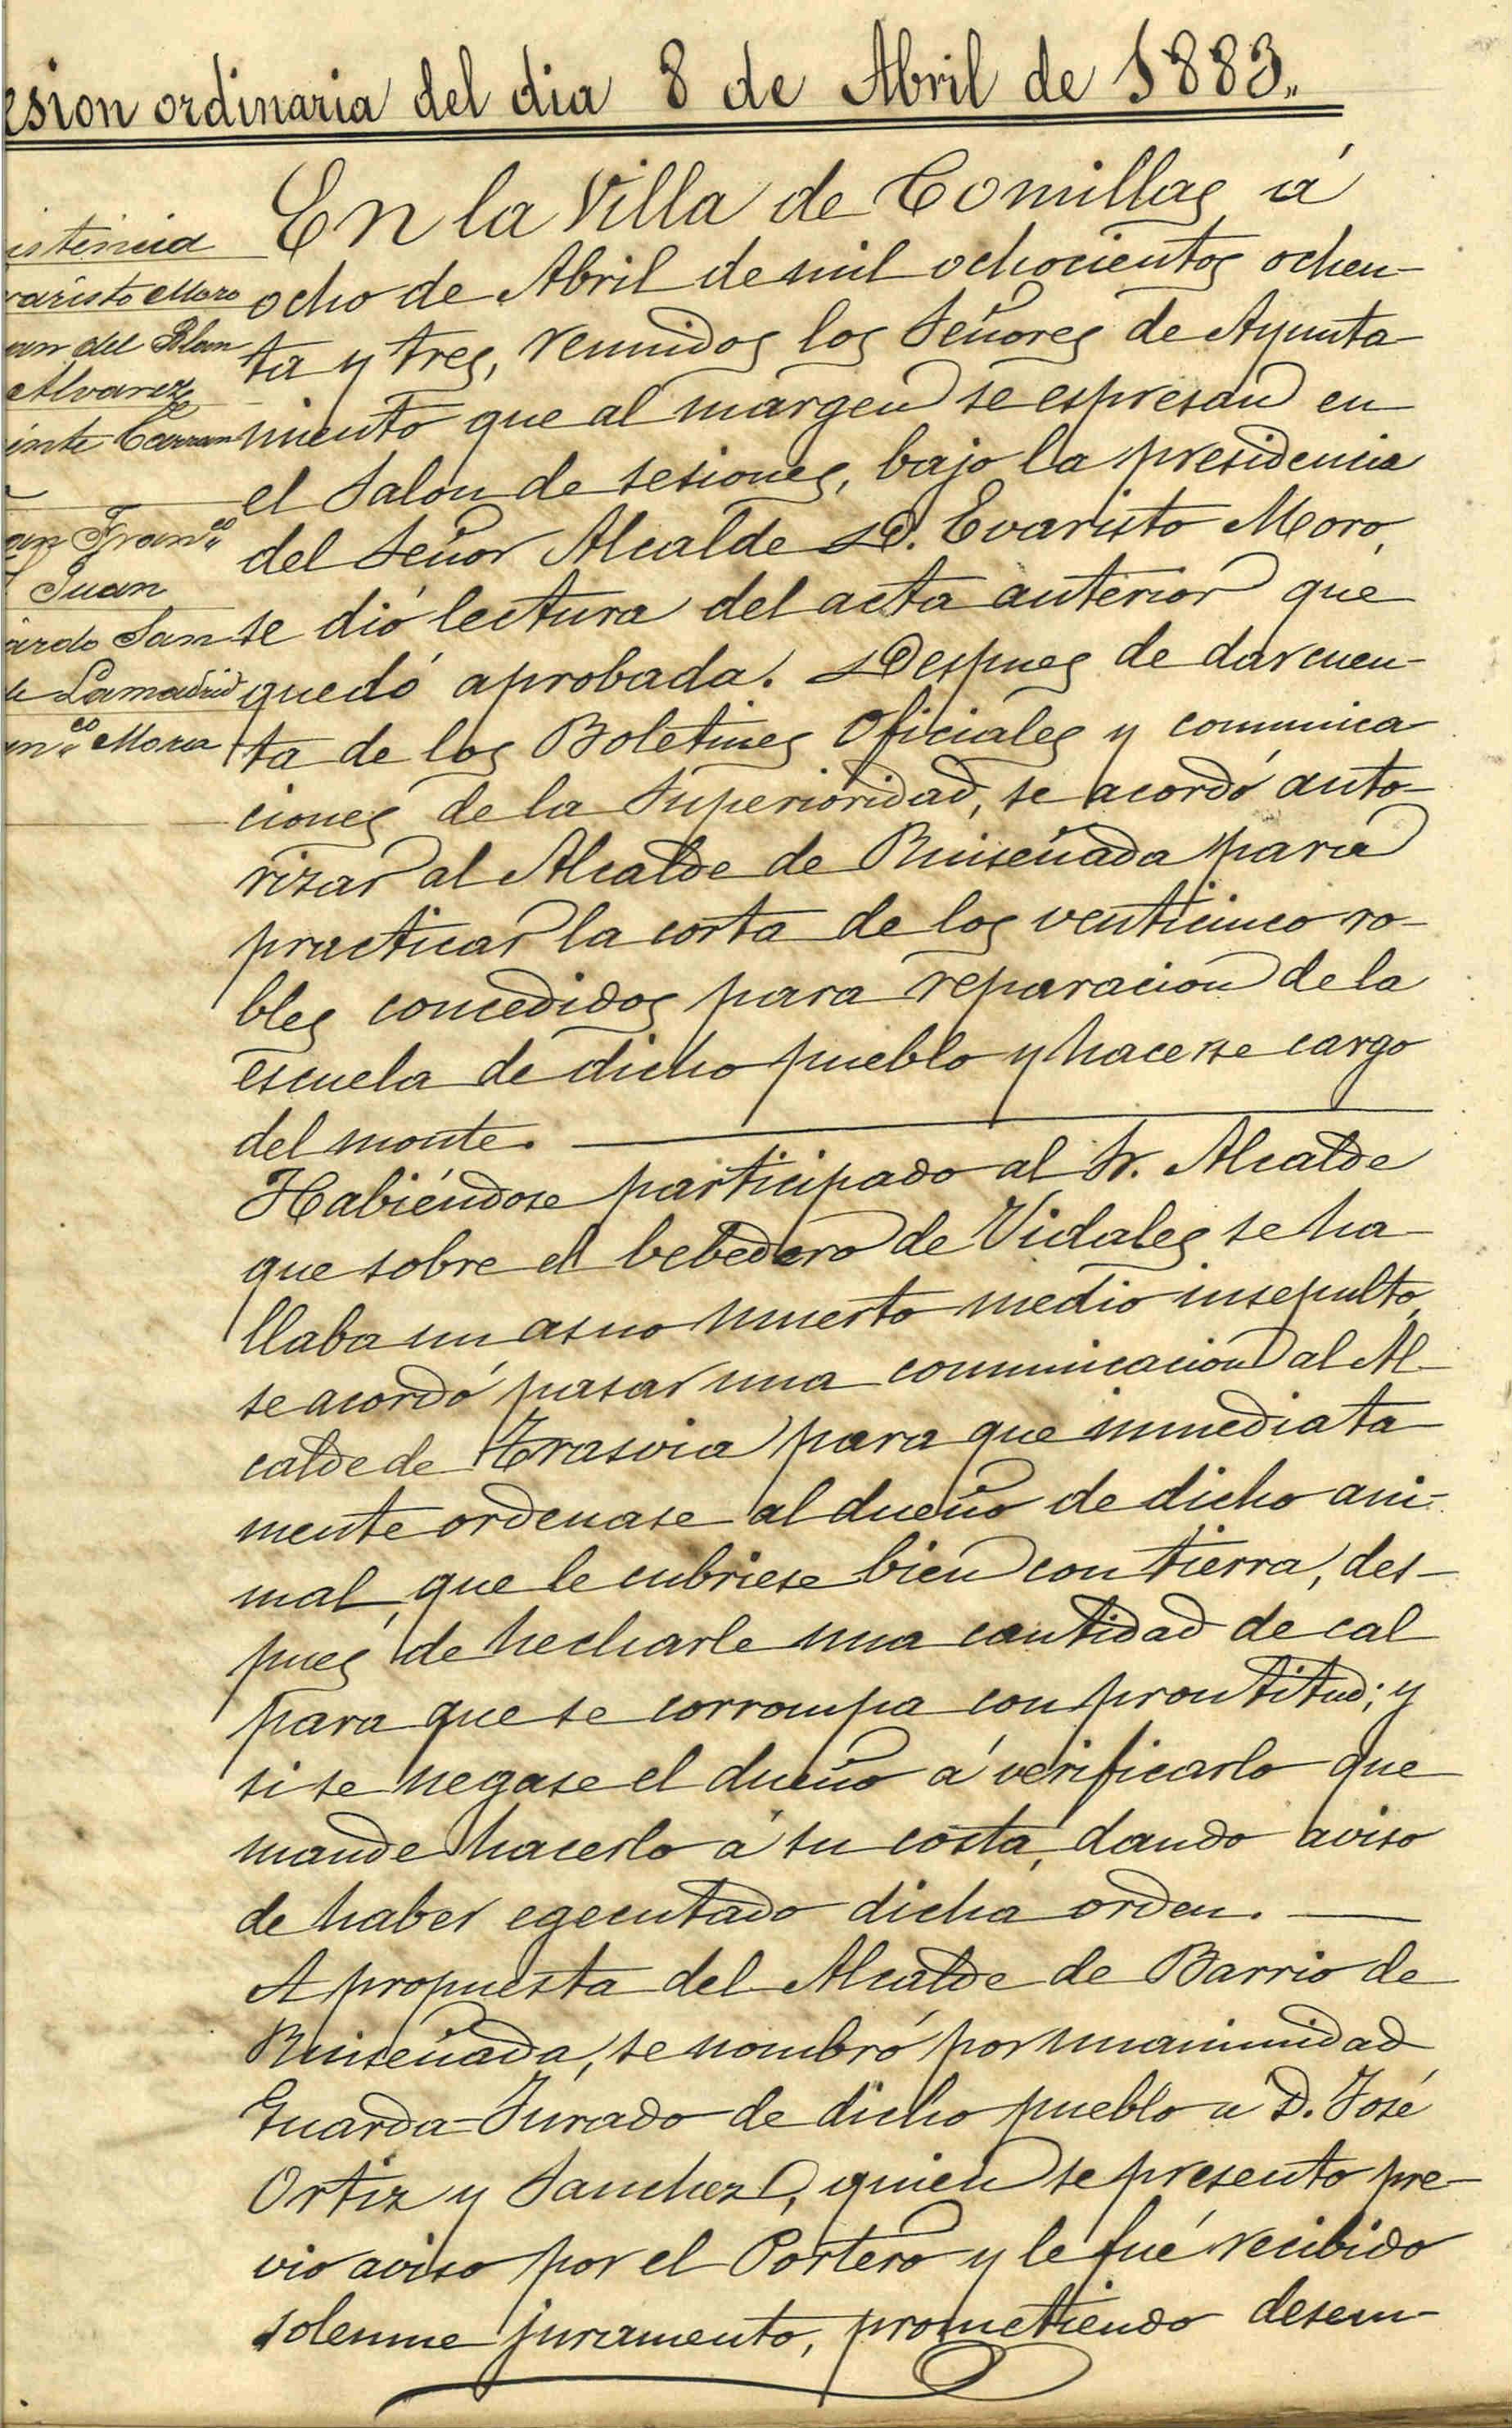 esion ordinaria del dia 8 de Abril de 1883.,
istencia
varisto Moro
an del Blan
Alvarez
inte Carran
an Fran.co
Juan
ardo San
de Lamadrid
an.co Mora
En la Villa de Comillas á
ocho de Abril de mil ochocientos ochen-
ta y tres, reunidos los Señores de Ayunta-
miento que al margen se espresan en
el Salon de sesiones, bajo la presidencia
del Señor Alcalde D. Evaristo Moro,
se dió lectura del acta anterior que
quedó aprobada. Despues de dar cuen-
ta de los Boletines Oficiales y comunica-
ciones de la Superioridad, se acordó auto-
rizar al Alcalde de Ruiseñada para
practicar la corta de los venticinco ro-
bles concedidos para reparacion de la
escuela de dicho pueblo y hacerse cargo
del monte.
Habiéndose participado al Sr. Alcalde
que sobre el bebedero de Vidales se ha-
llaba un asno muerto medio insepulto,
se acordó pasar una comunicacion al Al-
calde de Trasvia para que inmediata-
mente ordenase al dueño de dicho ani-
mal, que le cubriese bien con tierra, des-
pues de hecharle una cantidad de cal
para que se corrompa con prontitud; y
si se negase el dueño á verificarlo que
mande hacerlo á su costa, dando aviso
de haber egecutado dicha orden.
A propuesta del Alcalde de Barrio de
Ruiseñada, se nombró por unanimidad
Guarda-Jurado de dicho pueblo a D. José
Ortiz y Sanchez, quien se presento pre-
vio aviso por el Portero y le fué recibido
solemne juramento, prometiendo desem-